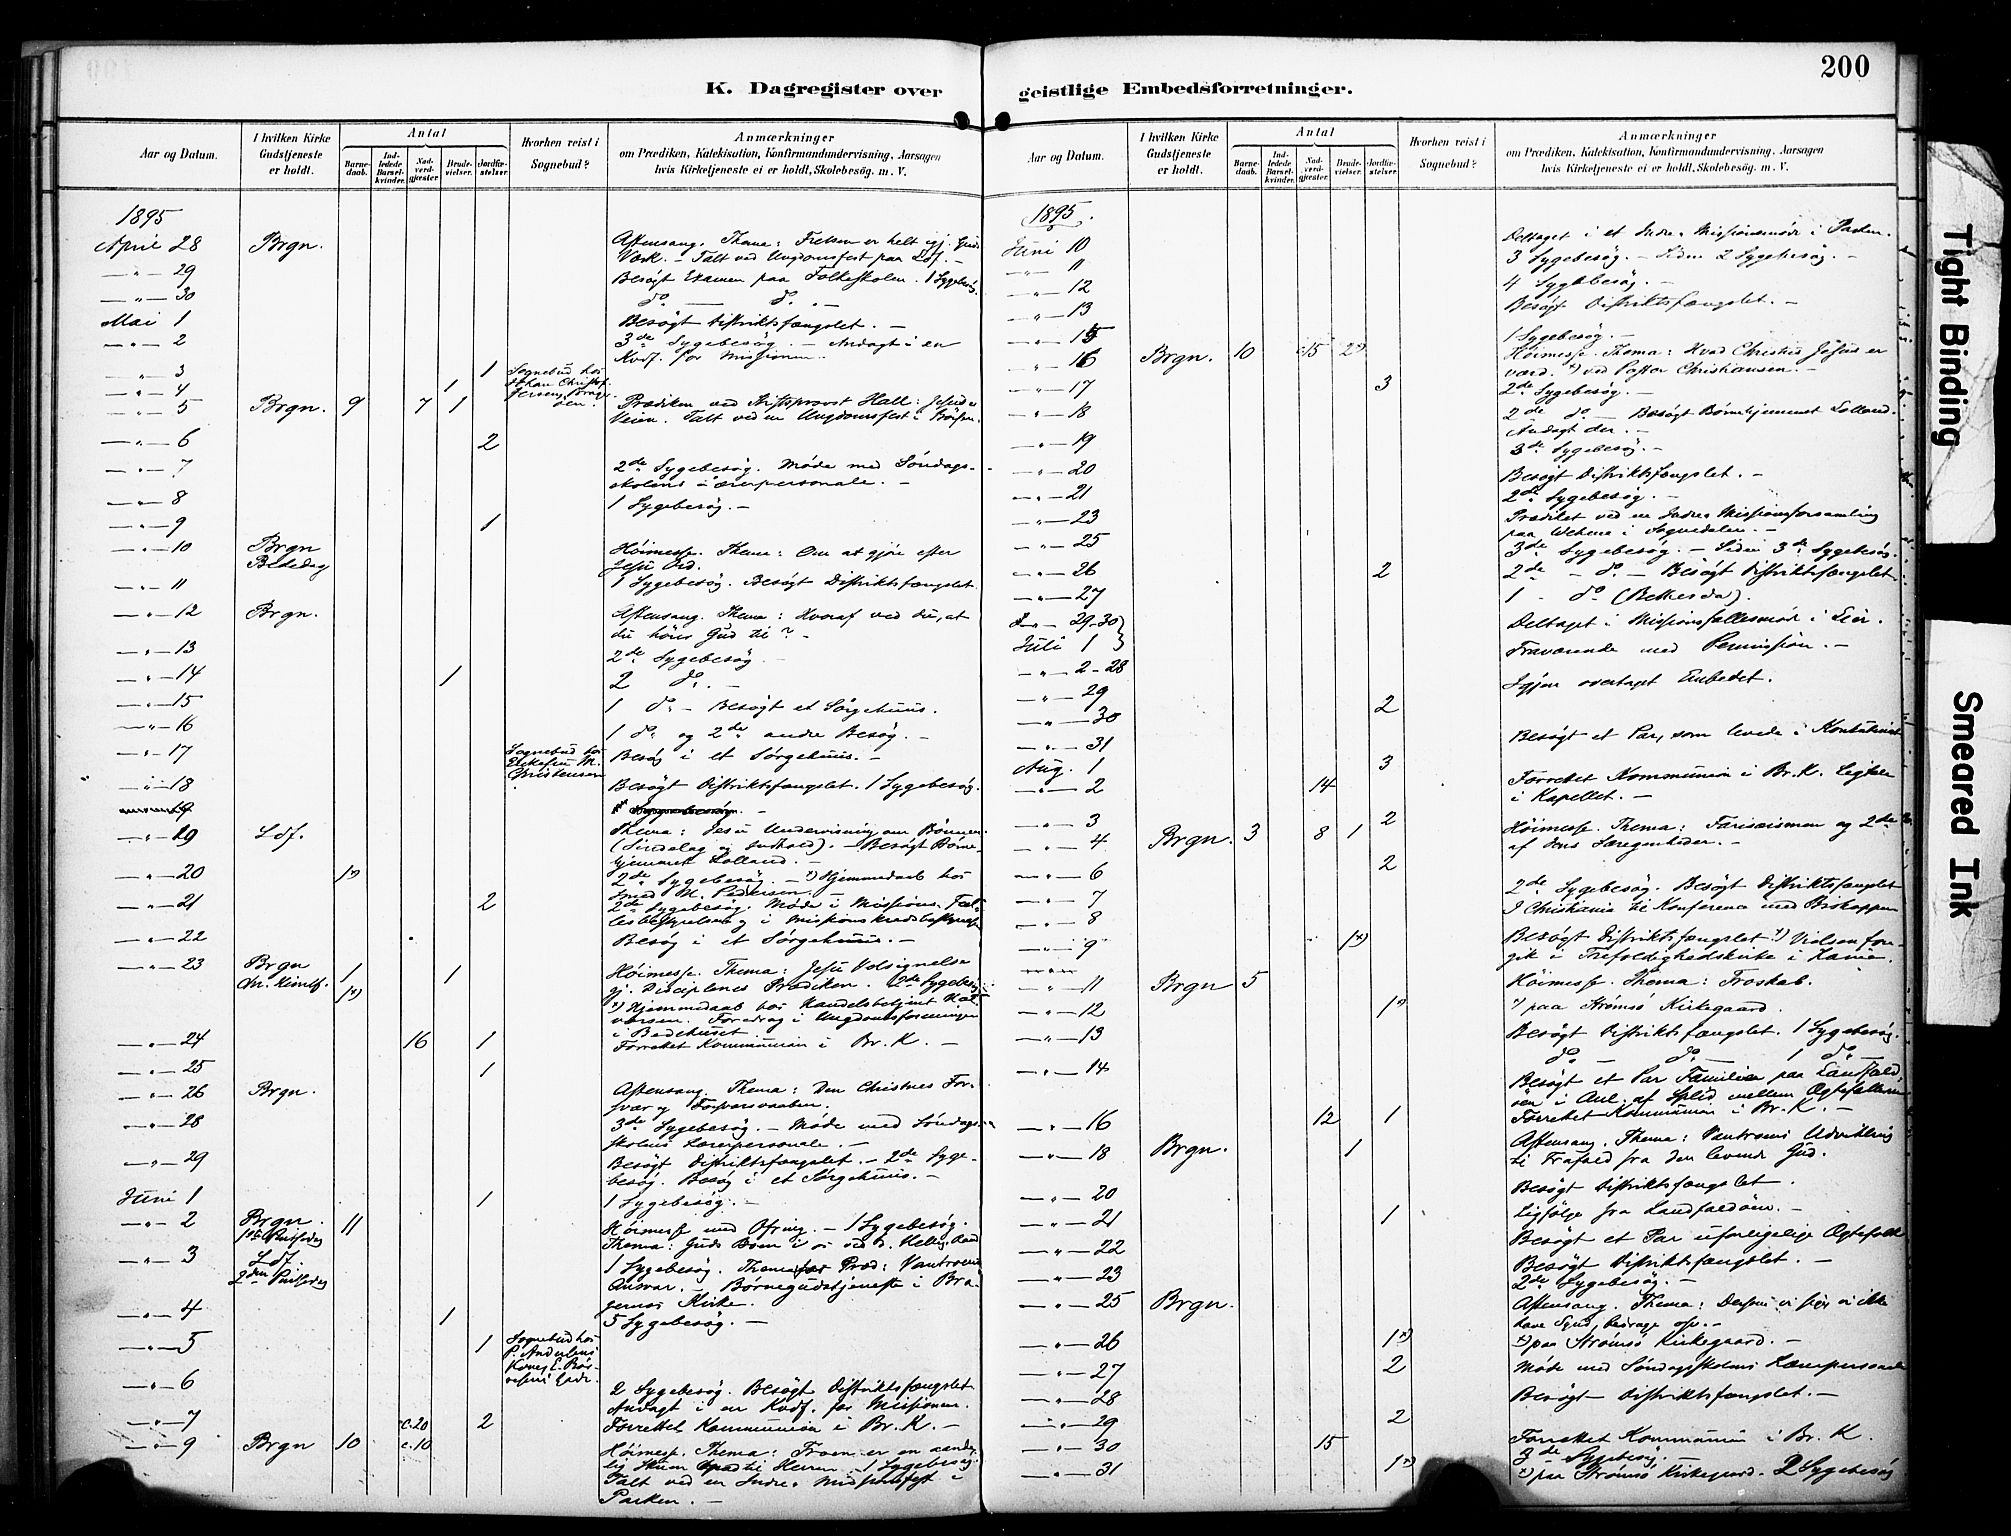 200
K. Dagregister over geistlige Embedsforretninger.
Aar og Datum.
I hvilken Kirke Gudstjeneste er holdt.
Antal
Barnedaab.
Indledede Barselkvinder.
Nadverdgjester.
Brudevielser.
Jordfæstelser.
Hvorhen reist i Sognebud?
Anmærkninger
om Prædiken, Katekisation, Konfirmandundervisning, Aarsagen
hvis Kirketjeneste ei er holdt, Skolebesög. m. V.
1895
April 28 Brgn. Aftensang. Thema: Frelsen er helt igj. Guds
Værk. - Talt ved Ungdomsfest paa Ldf. -
— " — 29 Besøgt Examen paa Folkeskolen. 1 Sygebesøg.
— " — 30 do. — do. -
Mai 1 Besøgt Distriktsfængslet. -
— " — 2 3de Sygebesøg. - Andagt i en
Kvdf. for Missionen.
— " — 3 1 Sognebud hos
— " — 4 1
— " — 5 Brgn. 9 7 1 Prædiken ved Stiftsprovst Hall: Jesus
Veien. Talt ved en Ungdomsfest i Børsen.
— " — 6 2
— " — 7 2de Sygebesøg. Møde med Søndags-
skolens Lærerpersonale. -
— " — 8 1 Sygebesøg. -
— " — 9 1
— " — 10 Brgn Høimesse. Thema: Om at gjøre efter
Bededag Jesu Ord.
— " — 11 1 Sygebesøg. Besøgt Distriktsfængslet.
— " — 12 Brgn. Aftensang. Thema: Hvoraf ved du, at
du hører Gud til? -
— " — 13 2de Sygebesøg -
— " — 14 1 2 do. -
— " — 15 1 do - Besøgt et Sørgehuus.
— " — 16 1 do og 2de andre Besøg. -
— " — 17 Sognebud hos
Christensen Besøg i et Sørgehuus. -
— " — 18 Besøgt Distriktsfængslet. 1 Sygebesøg.
— " — 19 Ldf. Thema: Jesu Undervisning om Bønnen.
(Sindelag og Indhold). - Besøgt Børne-
hjemmet Lolland. -
— " — 20 1*) 2de Sygebesøg. - *) Hjemmedaab hos
Smed M. Pedersen. -
— " — 21 2 2de Sygebesøg. Møde i Missions. Fæl-
lesbestyrelsen og i Missionskredsbestyrelsen
— " — 22 Besøg i et Sørgehuus. -
— " — 23 Brgn 1 1 Høimesse. Thema: Jesu Velsignelse
1*) gj. Disciplenes Prædiken. 2de Sygebesøg
*) Hjemmedaab hos Handelsbetjent Hal-
vorsen. Foredrag i Ungdomsforeningen
i Bedehuset.
— " — 24 16 1 Forrettet Kommunion i Br. K. -
— " — 25 1
— " — 26 Brgn. Aftensang. Thema: Den Christnes For-
svar og Forsvarsvaaben.
— " — 28 3de Sygebesøg. - Møde med Søndags-
skolens Lærerpersonale. -
— " — 29 Besøgt Distriktsfængslet. - 2de Syge-
besøg. Besøg i et Sørgehuus. -
Juni 1 1 1 Sygebesøg. -
— " — 2 Brgn. 11 Høimesse med Ofring. - 1 Sygebesøg.
1ste Pinsedag Thema: Guds Boen i os ved d. Hellig Aand
— " — 3 Ldf. 1 Sygebesøg. Thema for Præd: Vantroens
2den Pinsedag Ansvar. - Børnegudstjeneste i Bra-
gernæs Kirke. -
— " — 4 1 5 Sygebesøg. -
— " — 5 1 Sognebud hos
P. Andersens
— " — 6 2 Sygebesøg. Besøgt Distriktsfængslet
Andagt i en Kvdf. for Missionen.
— " — 7 c. 20 2 Forrettet Kommunion i Br. K. -
— " — 9 Brgn 10 c. 10 Høimesse. Thema: Troen er en aande-
lig Herren. - 1 Sygebesøg.
Talt ved en Indre Missionsfest i
Parken. -
Aar og Datum.
I hvilken Kirke Gudstjeneste er holdt.
Antal
Barnedaab.
Indledede Barselkvinder.
Nadverdgjester.
Brudevielser.
Jordfæstelser.
Hvorhen reist i Sognebud?
Anmærkninger
om Prædiken, Katekisation, Konfirmandundervisning, Aarsagen
hvis Kirketjeneste ei er holdt, Skolebesög. m. V.
1895.
Juni 10 Deltaget i et Indre Missionsmøde i Parken.
— " — 11 3 Sygebesøg. - Siden 2 Sygebesøg. -
— " — 12 4 Sygebesøg. -
— " — 13 Besøgt Distriktsfængslet. -
— " — 15 1 Sygebesøg. -
— " — 16 Brgn. 10 c15 2*) Høimesse. Thema: Hvad Christus Jesus er
værd. *) ved Pastor Christiansen. -
— " — 17 3 2de Sygebesøg. -
— " — 18 2de do - Besøgt Børnehjemmet Lolland.
Andagt der. -
— " — 19 3de Sygebesøg. -
— " — 20 Besøgt Distriktsfængslet. -
— " — 21 2de Sygebesøg. -
— " — 23 Prædiket ved en Indre Missionsforsamling
paa i Sognedalen. -
— " — 25 3de Sygebesøg. - Siden 3de Sygebesøg.
— " — 26 2 2de - do. - Besøgt Distriktsfængslet
— " — 27 1 - do (Bethesda).
— " — 29-30 Deltaget i Missionsfællesmøde i Lier.
Juli 1
— " — 2-28 Fraværende med Permission. -
— " — 29 Igjen overtaget Embedet.
— " — 30 2
— " — 31 Besøgt et Par, som levede i Konkubinat
Aug. 1 3
— " — 2 14 Forrettet Kommunion i Br. K. Ligtale
i Kapellet. -
— " — 3 2
— " — 4 Brgn. 3 8 1 Høimesse. Thema: Farisæismen og 2de
af dens Særegenheder. -
— " — 6 2
— " — 7 2de Sygebesøg. Besøgt Distriktsfængslet
— " — 8 I Christiania til Konference med Biskoppen
— " — 9 1*) Besøgt Distriktsfængslet *) Vielsen fore-
gik i Trefoldighedskirke i Xania.
— " — 11 Brgn 5 Høimesse. Thema: Troskab.
— " — 12 1*) *) paa Strømsø Kirkegaard.
— " — 13 Besøgt Distriktsfængslet. 1 Sygebesøg.
do. — do. — 1 do. —
— " — 14 Besøgt et Par Familier paa Landfald
øen i Anl. af Splid mellem Ægtefællerne
— " — 16 12 1 Forrettet Kommunion i Br. K. -
— " — 18 Brgn. 1 Aftensang. Thema: Vantroens Udvikling
til Frafald fra den levende Gud.
— " — 20 Besøgt Distriktsfængslet.
— " — 21 1 Ligfølge fra Landfaldøen. -
— " — 22 Besøgt et Par uforligelige Ægtefolk
— " — 23 Besøgt Distriktsfængslet. -
2de Sygebesøg. -
— " — 25 Brgn. Aftensang. Thema: Dersom vi sige vi ikke
have Synd, bedrage osv. -
— " — 26 1*) *) paa Strømsø Kirkegaard. -
— " — 27 2 Møde med Søndagsskolens Lærerpersonale
— " — 28 Besøgt Distriktsfængslet. -
— " — 29 2
— " — 30 15 Forrettet Kommunion i Br. K.
3de Sygebesøg. -
— " — 31 1*) *) paa Strømsø Kirkegaard. 2 Sygebesøg
Tight Binding
Smeared Ink